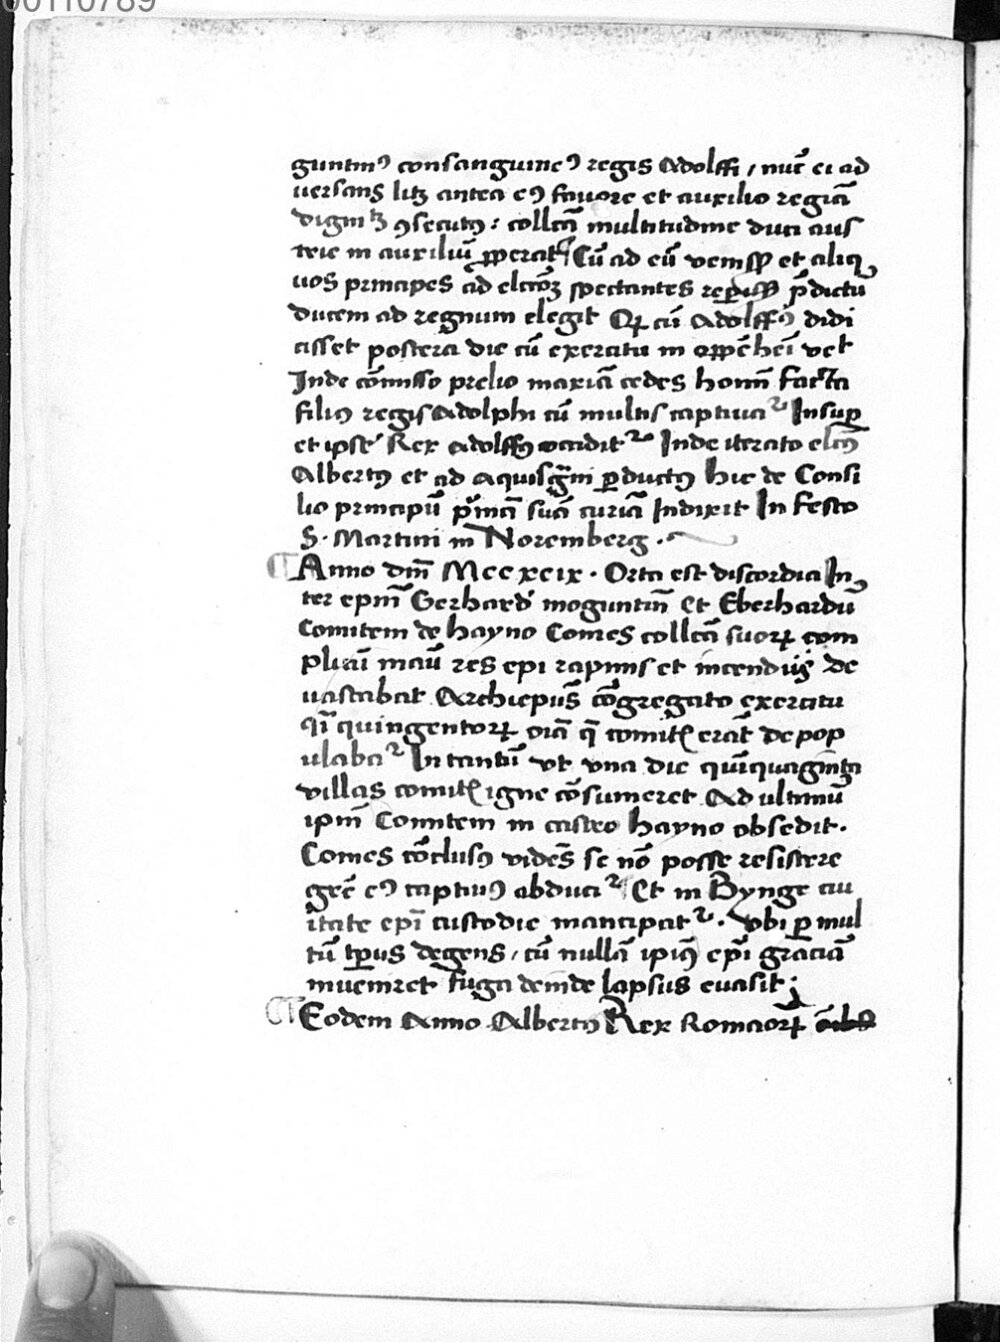 00110789
guntinꝰ consanguineꝰ regis Adolffi / nūc ei ad
uersans litꝫ antea eꝰ fauore et auxilio regiā
dignitꝫ ꝯsecutꝰ : collcā multitudine duci aus
trie in auxiliū ꝓperat Cū ad eū
uos principes ad spectantes p̄dictū
ducem ad regnum elegit Qꝛ cū Adolffꝰ didi
cisset postera die cū exercitu in oppēheī
Inde cōmisso prelio maxīa cedes homī facta
filiꝰ regis Adolphi cū multis captiuat᷑ Insuꝑ
et ipse Rex Adolffꝰ occidit᷑ Inde iterato elcꝰ
Albertꝰ et ad aquisgrani ꝑductꝰ hic de Consi
lio principū p̄mā suā curiā Indixit In festo
S. Martini in Noremberg .
Anno dnī Mccxcix . Orta est discordia In
ter epm̄ Gerhard᷑ moguntin̄ Et Eberhardū
Comitem de hayno Comes collcā suoꝝ com
plicū manū res epi rapinis et incendiis de
uastabat Archiepūs cōgregato exercitu
quingentoꝝ oīa q̄ comitꝭ erāt depop
ulabat᷑ In tantū vt vna die quīquaginta
villas comitꝭ igne cōsumeret Ad ultimū
ipm̄ Comitem in castro hayno obsedit .
Comes cōclusꝰ vidēs se nō posse resistere
eꝰ captiuꝰ abducit᷑ Et in Bynge ciu
itate epī custodie mancipat᷑ . Vbi ꝑ mul
tū tp̄us degens / cū nullā ipiꝰ ep̄i graciā
inueniret fuga deinde lapsus euasit ;
Eodem Anno Albertꝰ Rex Romaoꝝ